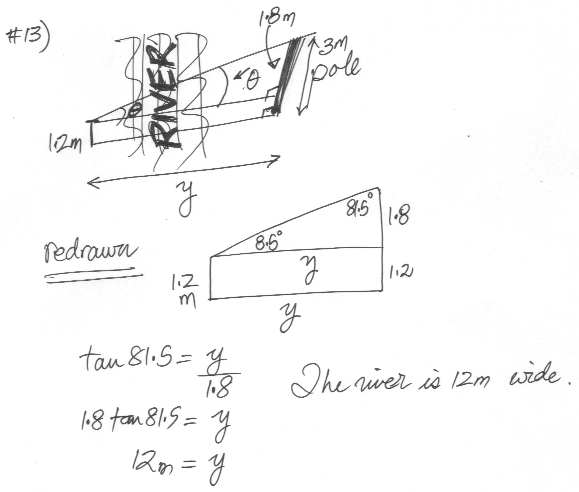 #13)
1.8m
3m
pole
RIVER
θ
θ
1.2m
y
redrawn
81.5°
1.8
8.5°
y
1.2
m
1.2
y
tan 81.5 = y
1.8
1.8 tan 81.5 = y
12m = y
The river is 12m wide.